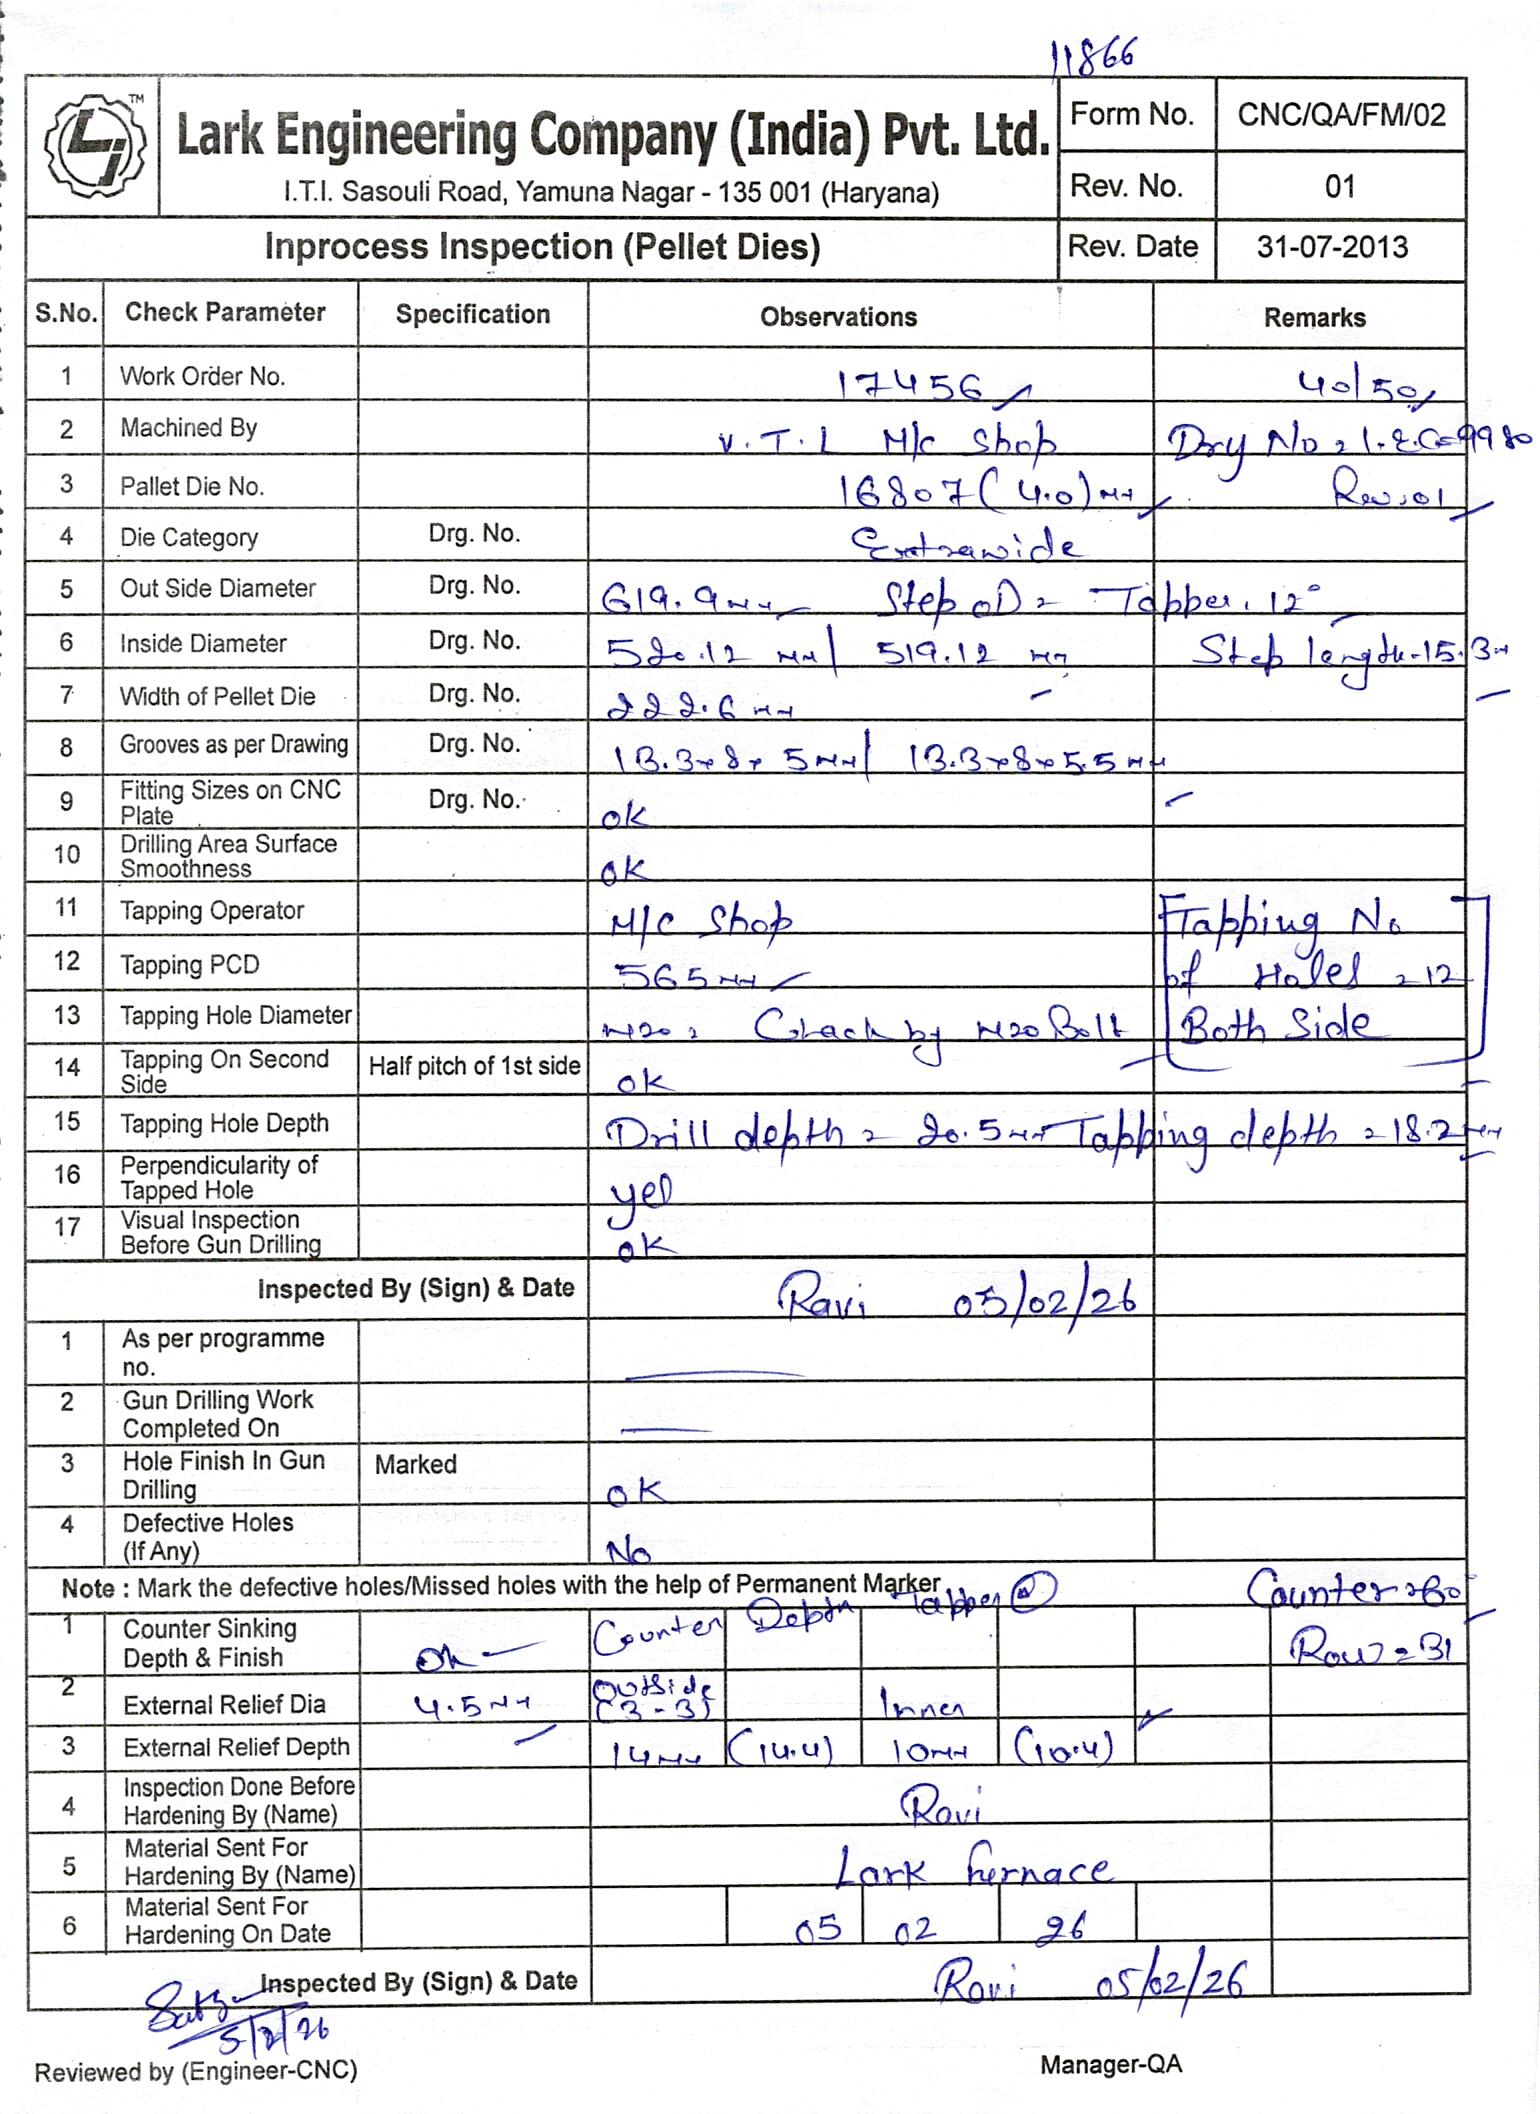 11866
TM
Lark Engineering Company (India) Pvt. Ltd.
I.T.I. Sasouli Road, Yamuna Nagar - 135 001 (Haryana)
Form No. CNC/QA/FM/02
Rev. No. 01
Inprocess Inspection (Pellet Dies) Rev. Date 31-07-2013
S.No. Check Parameter Specification Observations Remarks
1 Work Order No. 17456 40/50
2 Machined By V.T.L M/c Shop Drg No = L.E.C=9980
3 Pallet Die No. 16807 (4.0) mm Rev.01
4 Die Category Drg. No. Extrawide
5 Out Side Diameter Drg. No. 619.9mm Step OD = Tapper. 12°
6 Inside Diameter Drg. No. 520.12 mm/ 519.12 mm Step length-15.3m
7 Width of Pellet Die Drg. No. 222.6 mm
8 Grooves as per Drawing Drg. No. 13.3x8x 5mm/ 13.3x8x5.5mm
9 Fitting Sizes on CNC Plate Drg. No. ok
10 Drilling Area Surface Smoothness ok
11 Tapping Operator M/C Shop Tapping No
12 Tapping PCD 565mm of Holes = 12
13 Tapping Hole Diameter M20 = Chack by M20 Bolt Both Side
14 Tapping On Second Side Half pitch of 1st side ok
15 Tapping Hole Depth Drill depth = 20.5mm Tapping depth = 18.2mm
16 Perpendicularity of Tapped Hole yes
17 Visual Inspection Before Gun Drilling ok
Inspected By (Sign) & Date Ravi 05/02/26
1 As per programme no.
2 Gun Drilling Work Completed On
3 Hole Finish In Gun Drilling Marked ok
4 Defective Holes (If Any) No
Note : Mark the defective holes/Missed holes with the help of Permanent Marker
Counter=60°
1 Counter Sinking Depth & Finish ok Counter Depth Tapper Row = 31
2 External Relief Dia 4.5mm Outside (3-3) Inner
3 External Relief Depth 14mm (14.4) 10mm (10.4)
4 Inspection Done Before Hardening By (Name) Ravi
5 Material Sent For Hardening By (Name) Lark fernace
6 Material Sent For Hardening On Date 05 02 26
Inspected By (Sign) & Date Ravi 05/02/26
5/2/26
Reviewed by (Engineer-CNC) Manager-QA